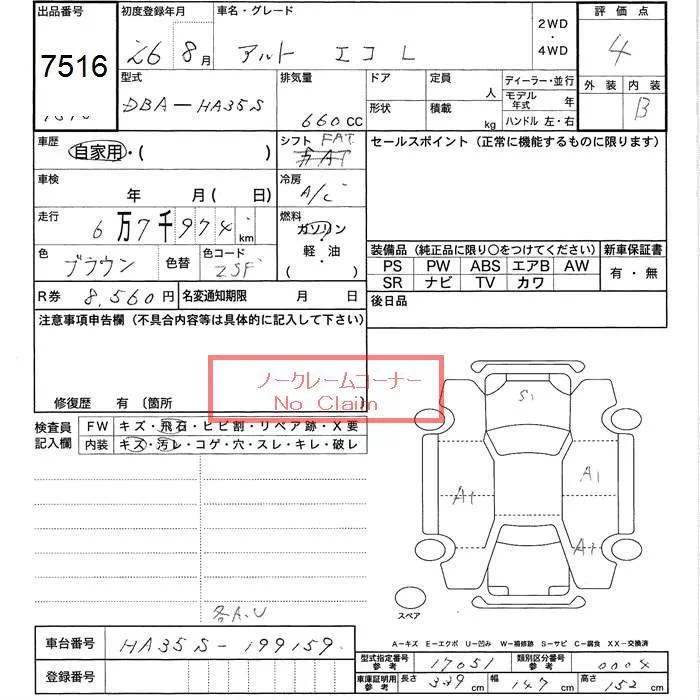 出品番号 初度登録年月 車名・グレード 2WD・4WD 評価点
7516 26 8月 アルト エコL 4
型式 排気量 ドア 定員 人 ディーラー・並行 外装 内装
モデル年式 年
DBA-HA35S 660cc 形状 積載 kg ハンドル 左・右 B
車歴 自家用・( ) シフト FAT セールスポイント(正常に機能するものに限ります)
車検 年 月( 日) 冷房 A/C
走行 6万7千974km 燃料 ガソリン・軽・油( )
色 ブラウン 色替 色コード ZSF
装備品(純正品に限り○をつけてください) 新車保証書
PS PW ABS エアB AW 有・無
SR ナビ TV カワ
R券 8,560円 名変通知期限 月 日 後日品
注意事項申告欄(不具合内容等は具体的に記入して下さい)
ノークレームコーナー
No Claim
修復歴 有〔箇所
検査員記入欄 FW キズ・飛石・ヒビ割・リペア跡・X要
内装 キズ・汚レ・コゲ・穴・スレ・キレ・破レ
S1
A1
A+
A+
各A.U
スペア
A-キズ E-エクボ U-凹み W-補修跡 S-サビ C-腐食 XX-交換済
車台番号 HA35S-199159
型式指定番号参考 17051 類別区分番号参考 0004
登録番号
車庫証明用参考 長さ 339cm 幅 147cm 高さ 152cm